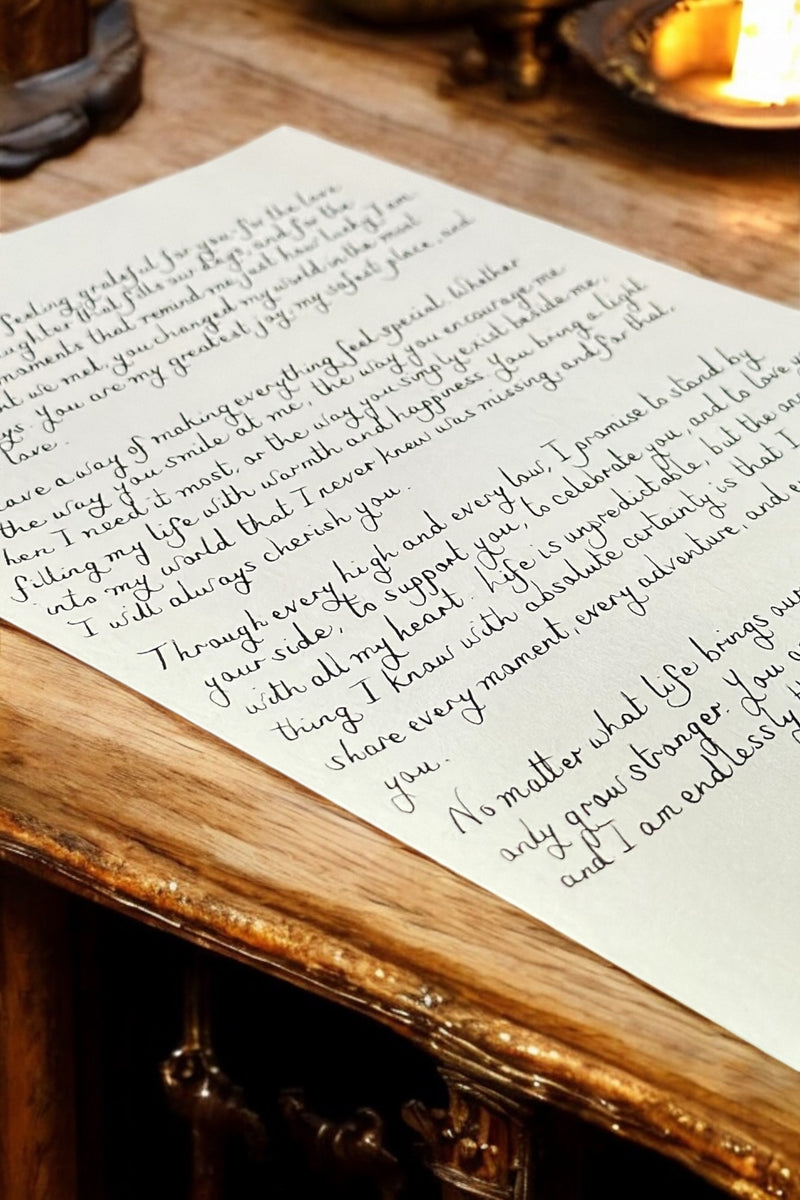 feeling grateful for you - for the love
that fills our days, and for the
moments that remind me just how lucky I am
we met, you changed my world in the most
You are my greatest joy, my safest place, and
love.
a way of making everything feel special. Whether
the way you smile at me, the way you encourage me
I need it most, or the way you simply exist beside me,
filling my life with warmth and happiness. You bring a light
into my world that I never knew was missing, and for that,
I will always cherish you.
Through every high and every low, I promise to stand by
your side, to support you, to celebrate you, and to love
with all my heart. Life is unpredictable, but the
thing I know with absolute certainty is that I
share every moment, every adventure, and
you.
No matter what life brings our
only grow stronger. You
and I am endlessly